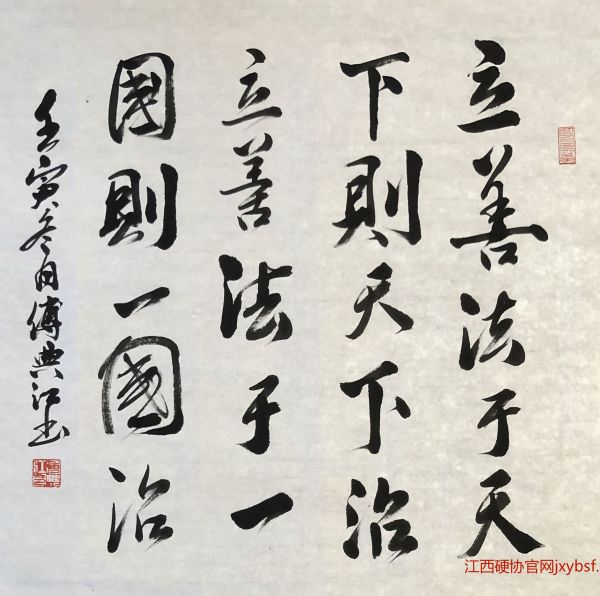 立善法于天
下則天下治
立善法于一
國則一國治
壬寅冬月傅典江书
江西硬协官网jxybsf.